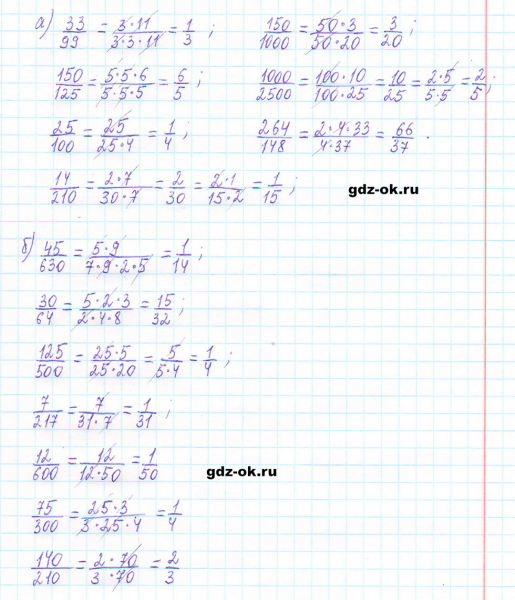 а) 33/99 = 3·11/3·3·11 = 1/3 ; 150/1000 = 50·3/50·20 = 3/20 ;
150/125 = 5·5·6/5·5·5 = 6/5 ; 1000/2500 = 100·10/100·25 = 10/25 = 2·5/5·5 = 2/5 ;
25/100 = 25/25·4 = 1/4 ; 264/148 = 2·4·33/4·37 = 66/37 .
14/210 = 2·7/30·7 = 2/30 = 2·1/15·2 = 1/15 ; gdz-ok.ru
б) 45/630 = 5·9/7·9·2·5 = 1/14 ;
30/64 = 5·2·3/2·4·8 = 15/32 ;
125/500 = 25·5/25·20 = 5/5·4 = 1/4 ;
7/217 = 7/31·7 = 1/31 ;
12/600 = 12/12·50 = 1/50 gdz-ok.ru
75/300 = 25·3/3·25·4 = 1/4
140/210 = 2·70/3·70 = 2/3